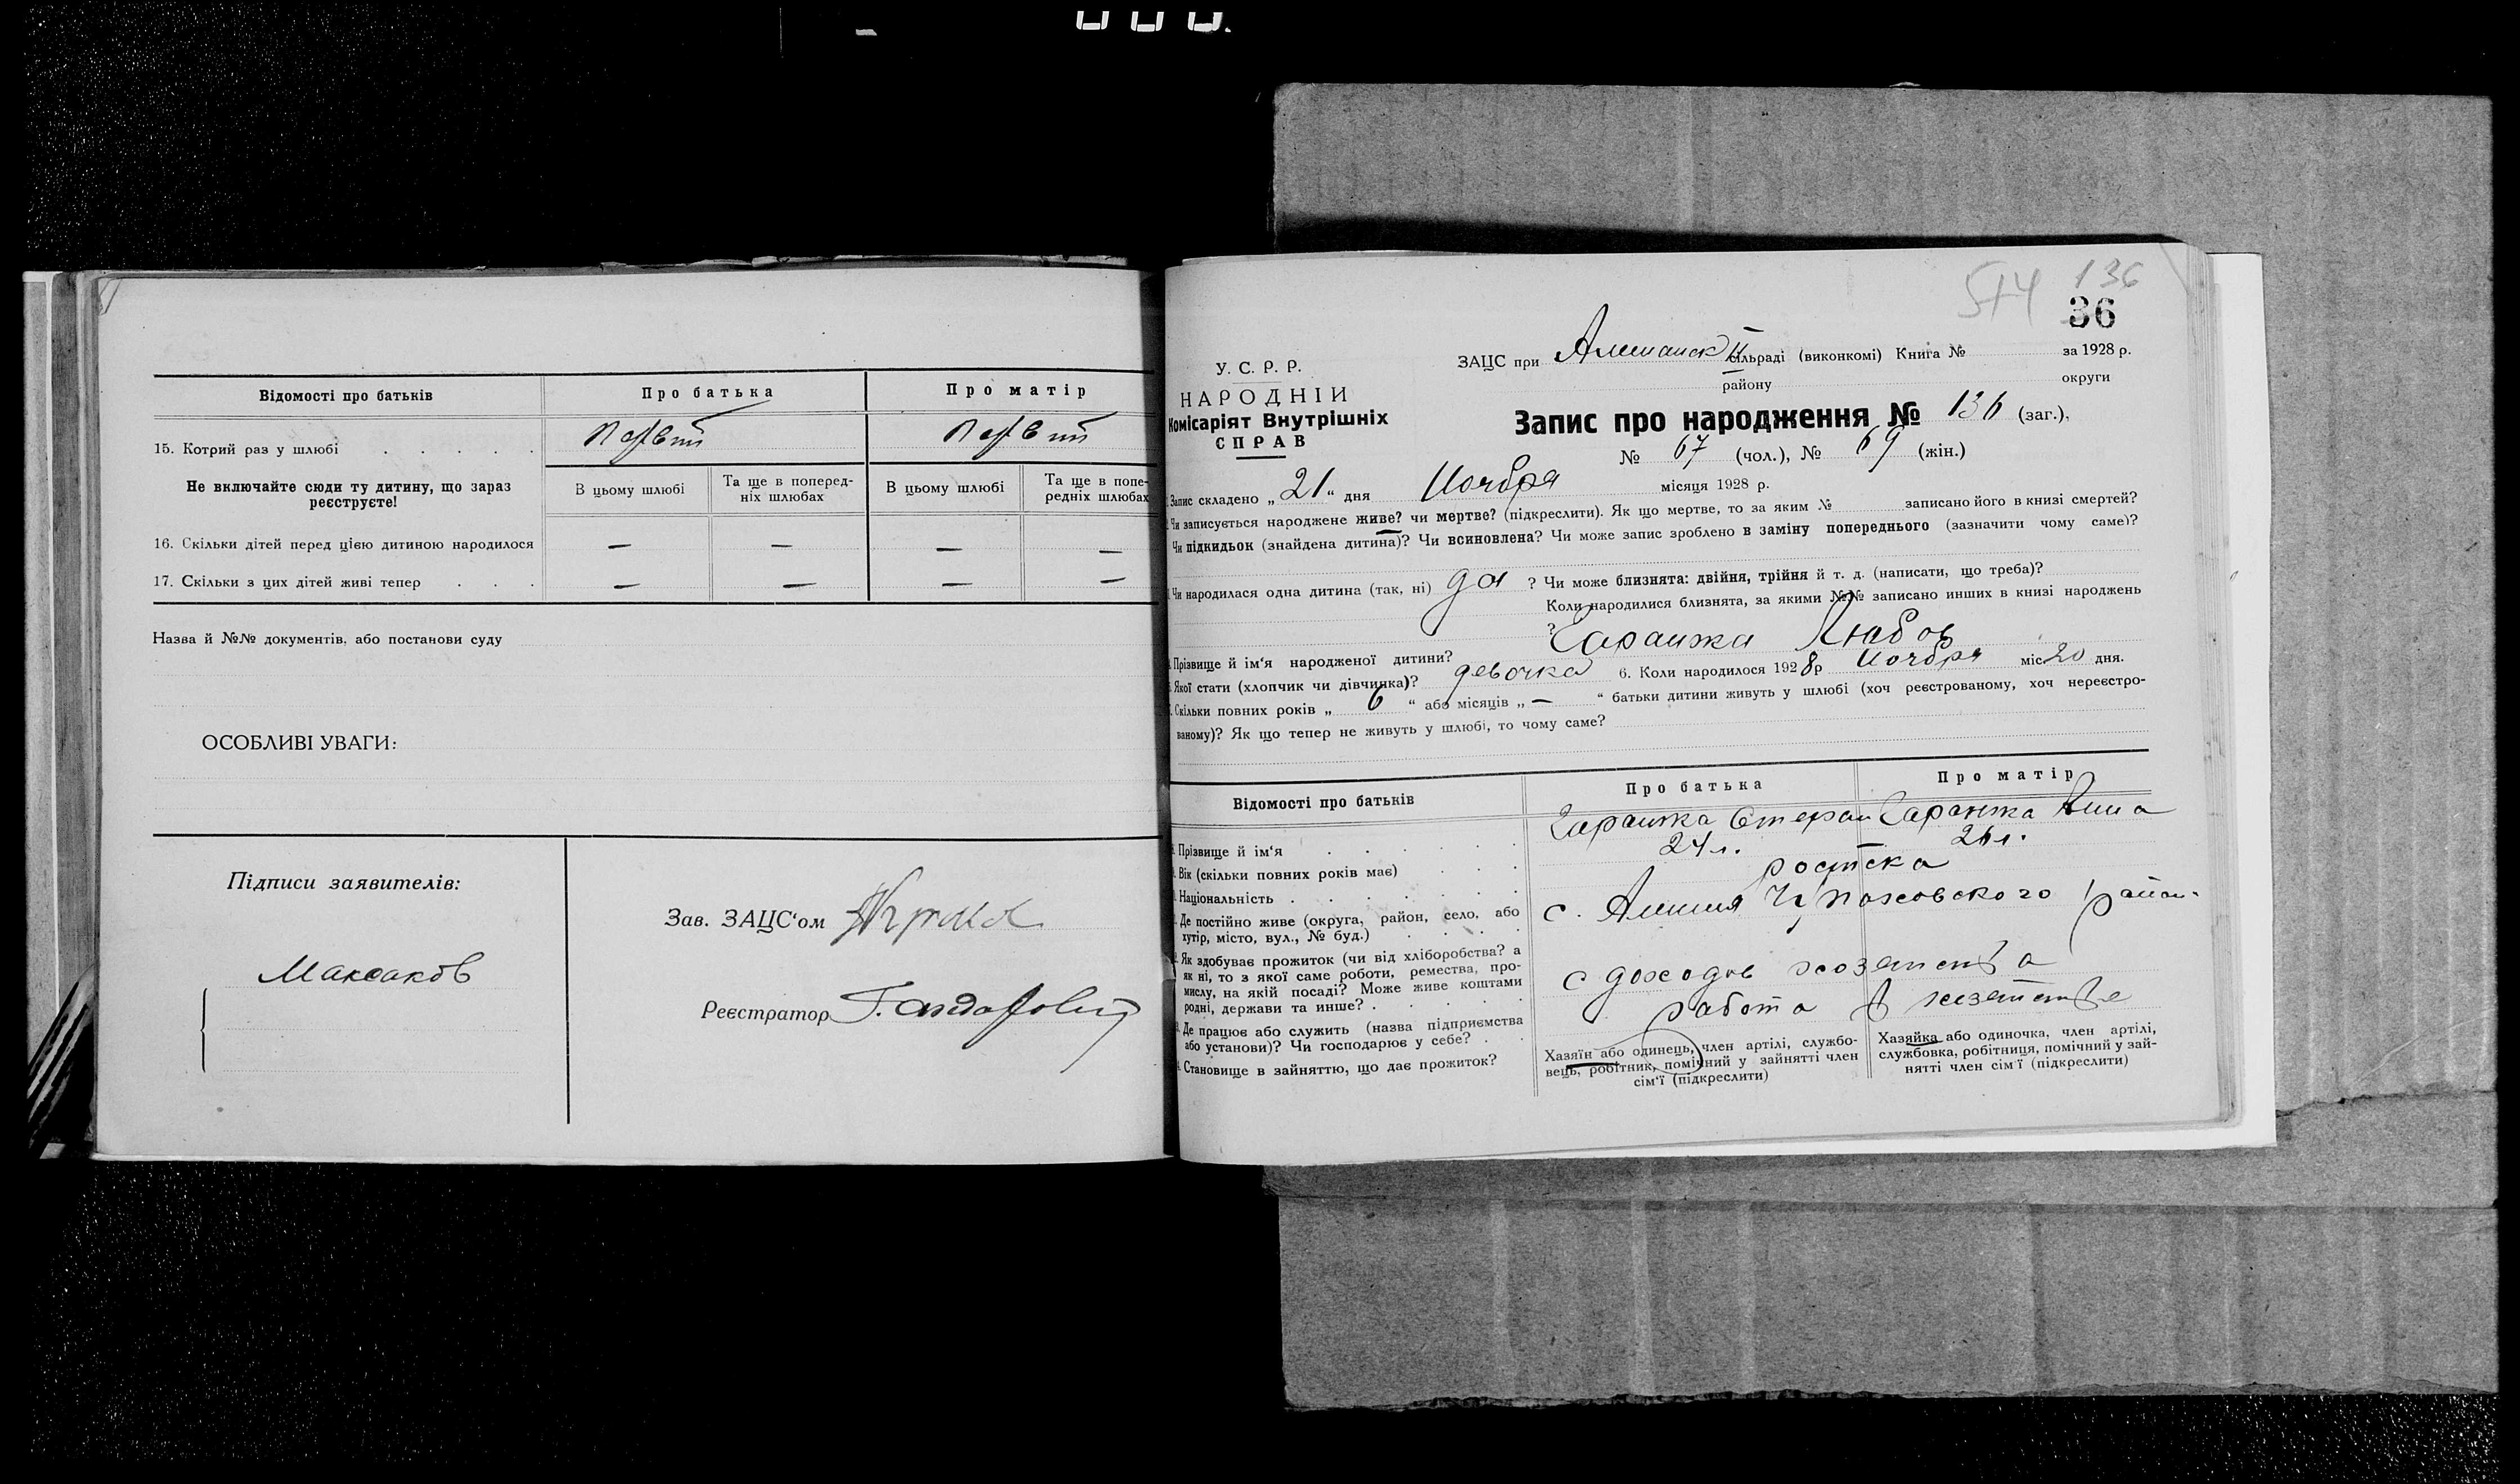 Відомості про батьків
Про батька
Про матір
15. Котрий раз у шлюбі
Первый
Первый
Не включайте сюди ту дитину, що зараз реєструєте!
В цьому шлюбі
Та ще в поперед-
ніх шлюбах
В цьому шлюбі
Та ще в попе-
редніх шлюбах
16. Скільки дітей перед цією дитиною народилося — — — —
17. Скільки з цих дітей живі тепер — — — —
Назва й №№ документів, або постанови суду
ОСОБЛИВІ УВАГИ:
Підписи заявителів:
Максаков
Зав. ЗАЦС'ом
Реєстратор
514 136
36
У. С. Р. Р.
НАРОДНІЙ
Комісаріят Внутрішніх
СПРАВ
ЗАЦС при сільраді (виконкомі) Книга № за 1928 р.
району округи
Запис про народження № 136 (заг.),
№ 67 (чол.), № 69 (жін.)
Запис складено „21“ дня Ноября місяця 1928 р.
Чи записується народжене живе? чи мертве? (підкреслити). Як що мертве, то за яким № записано його в книзі смертей?
Чи підкидьок (знайдена дитина)? Чи всиновлена? Чи може запис зроблено в заміну попереднього (зазначити чому саме)?
Чи народилася одна дитина (так, ні) да ? Чи може близнята: двійня, трійня й т. д. (написати, що треба)?
Коли народилися близнята, за якими №№ записано инших в книзі народжень
?
Прізвище й ім'я народженої дитини? Гаранжа Любов
Якої стати (хлопчик чи дівчинка)? девочка 6. Коли народилося 1928 р Ноября міс 20 дня.
Скільки повних років „ 6 “ або місяців „ — “ батьки дитини живуть у шлюбі (хоч реєстрованому, хоч нереєстро-
ваному)? Як що тепер не живуть у шлюбі, то чому саме?
Відомості про батьків
Про батька
Про матір
Прізвище й ім'я
Гаранжа Стефан
Гаранжа Анна
Вік (скільки повних років має)
24 л.
26 л.
Національність
Де постійно живе (округа, район, село, або
хутір, місто, вул., № буд.)
с.
район
Як здобуває прожиток (чи від хліборобства? а
як ні, то з якої саме роботи, ремества, про-
мислу, на якій посаді? Може живе коштами
родні, держави та инше?
с доходов хозяйства
Де працює або служить (назва підприємства
або установи)? Чи господарює у себе?
работа в хозяйстве
Становище в зайняттю, що дає прожиток?
Хазяїн або одинець, член артілі, службо-
вець, робітник, помічний у зайнятті член
сім'ї (підкреслити)
Хазяйка або одиночка, член артілі,
службовка, робітниця, помічний у зай-
нятті член сім'ї (підкреслити)